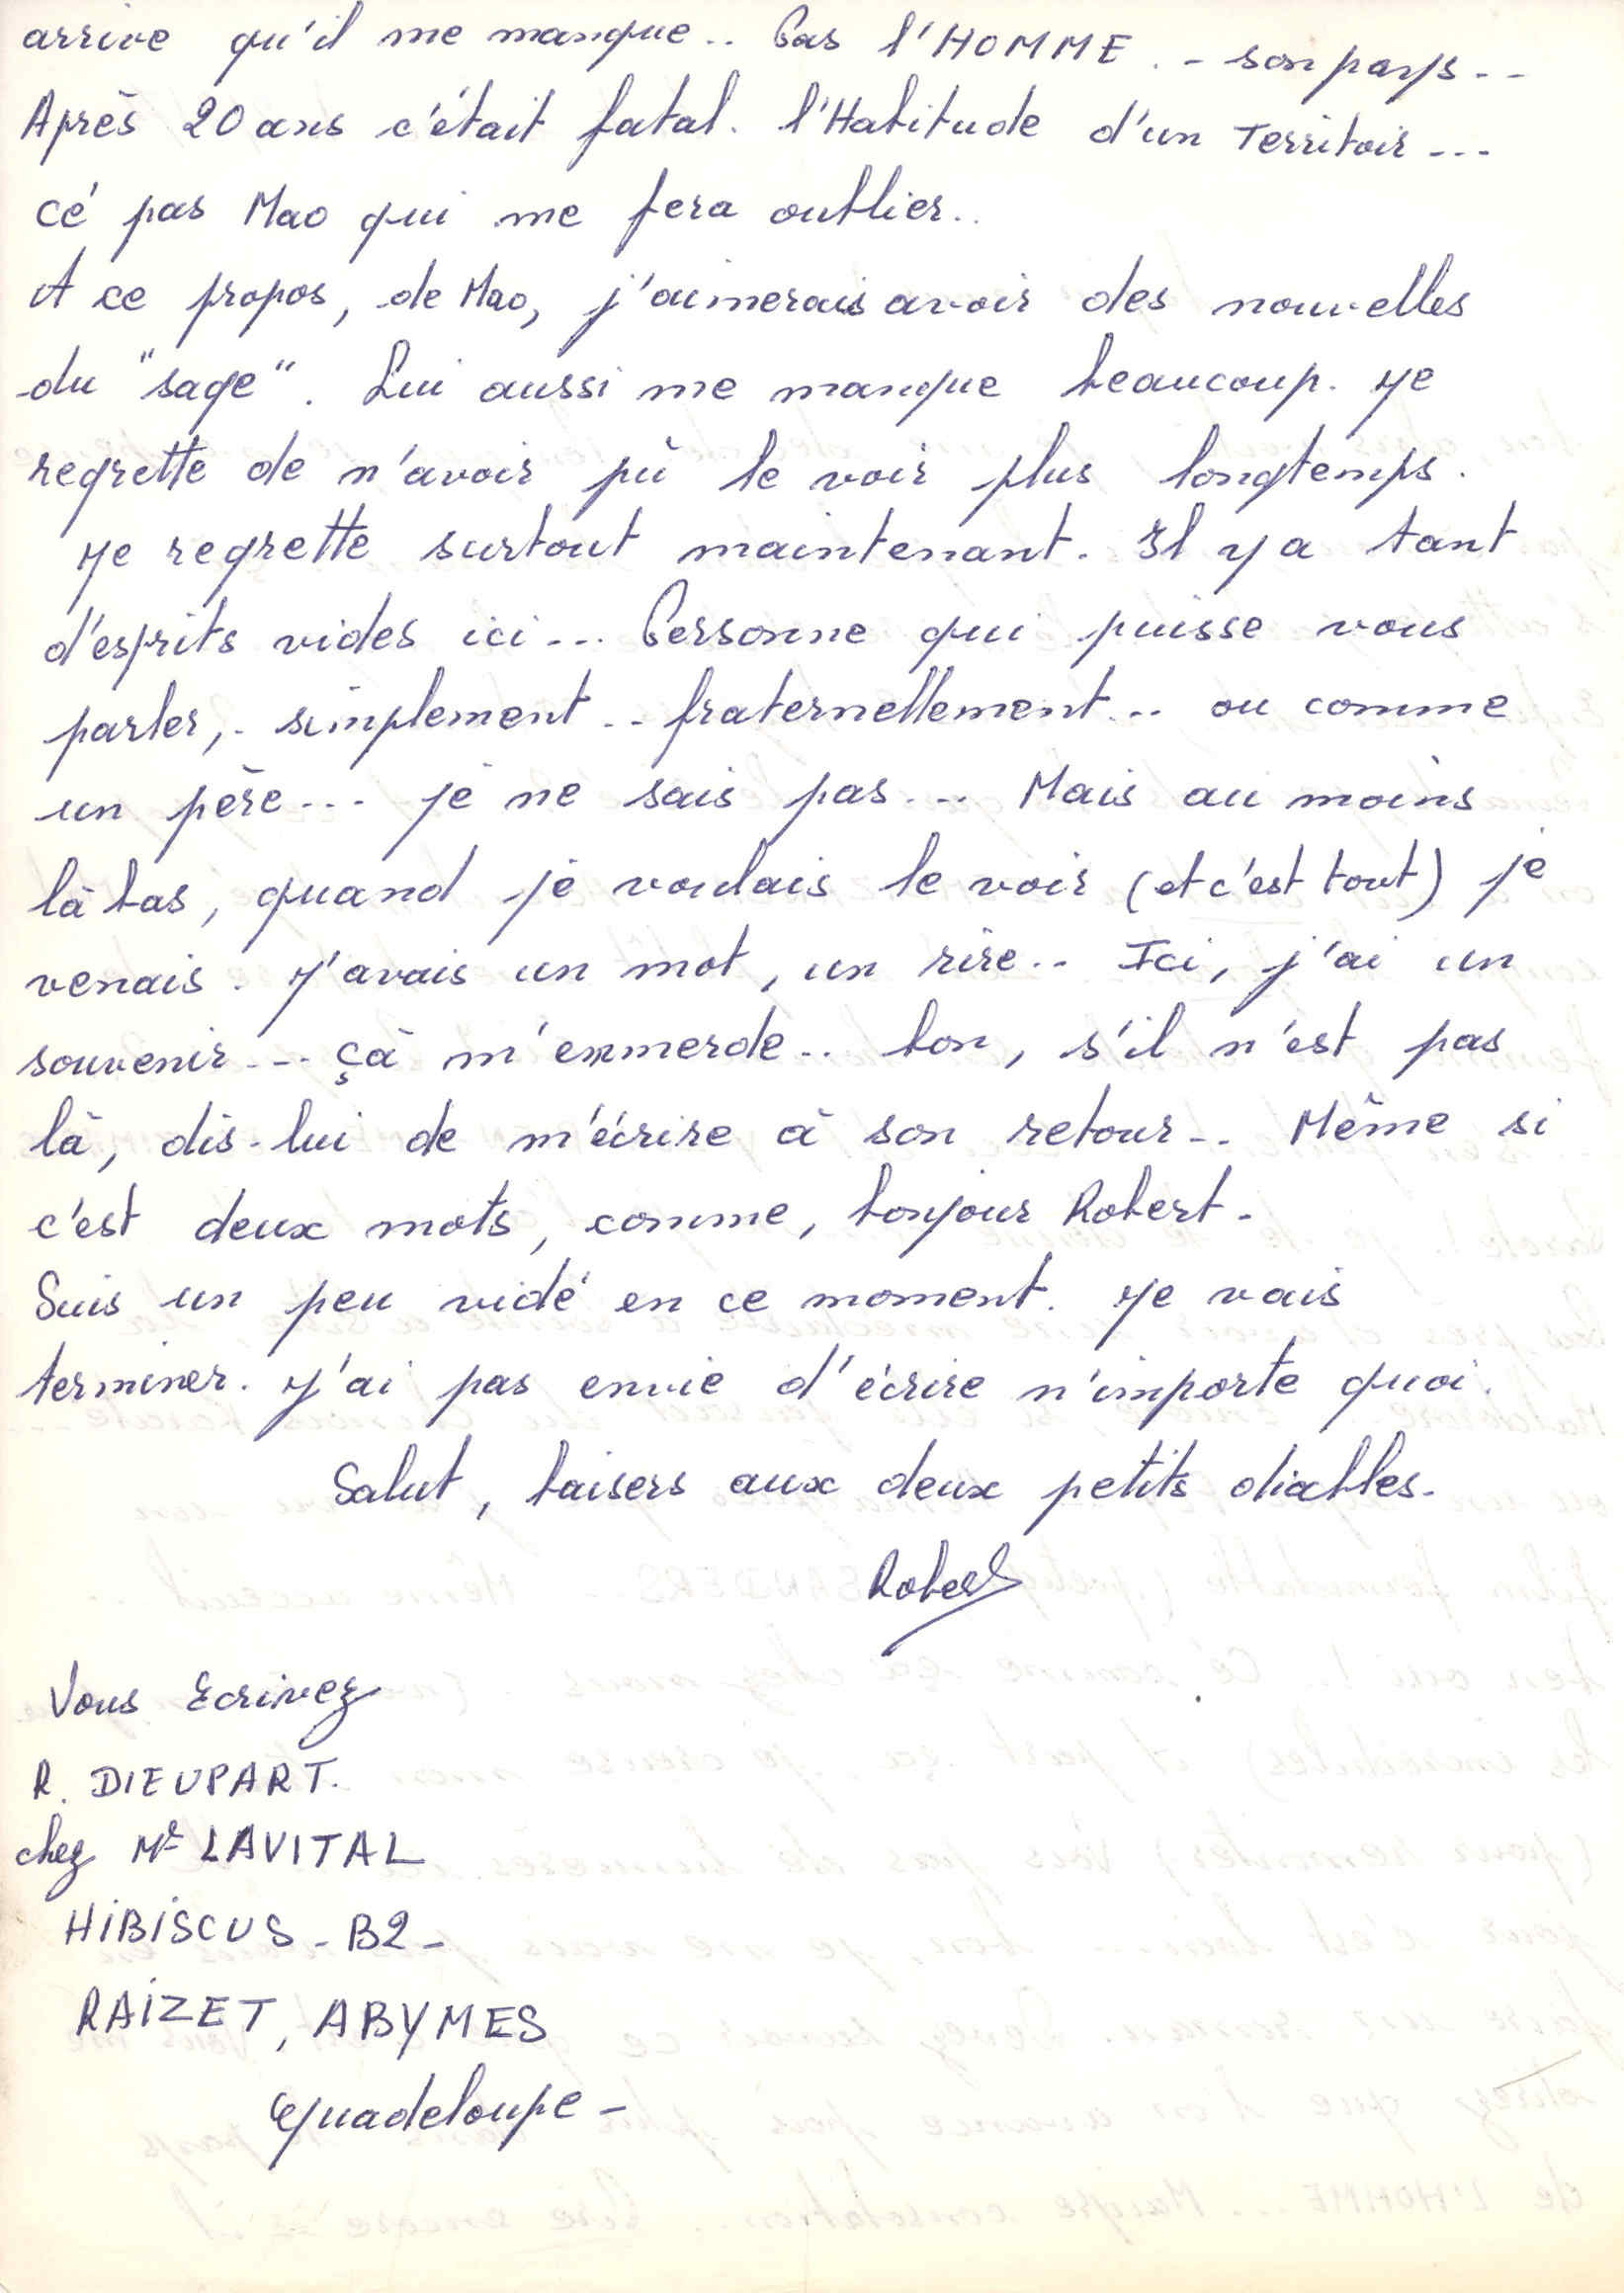 arrive qu'il me manque.. Pas l'HOMME. - son pays--
Après 20 ans c'était fatal. l'Habitude d'un Territoir ---
cé pas Mao qui me fera oublier..
A ce propos, de Mao, j'aimerais avoir des nouvelles
du "sage". Lui aussi me manque beaucoup. Je
regrette de n'avoir pù le voir plus longtemps.
Je regrette surtout maintenant. Il y a tant
d'esprits vides ici --- Personne qui puisse vous
parler,. simplement -- fraternellement --- ou comme
un père --- je ne sais pas --- Mais au moins
là bas, quand je voulais le voir (et c'est tout) je
venais. J'avais un mot, un rire.. Ici, j'ai un
souvenir --- çà m'emmerde.. bon, s'il n'est pas
là, dis-lui de m'écrire à son retour -- Même si
c'est deux mots, comme, bonjour Robert -
Suis un peu vidé en ce moment. Je vais
terminer. J'ai pas envie d'écrire n'importe quoi.
Salut, baisers aux deux petits diables-
Robert
Vous Ecrivez
R. DIEUPART.
chez Mr LAVITAL
HIBISCUS - B2 -
RAIZET, ABYMES
Guadeloupe -